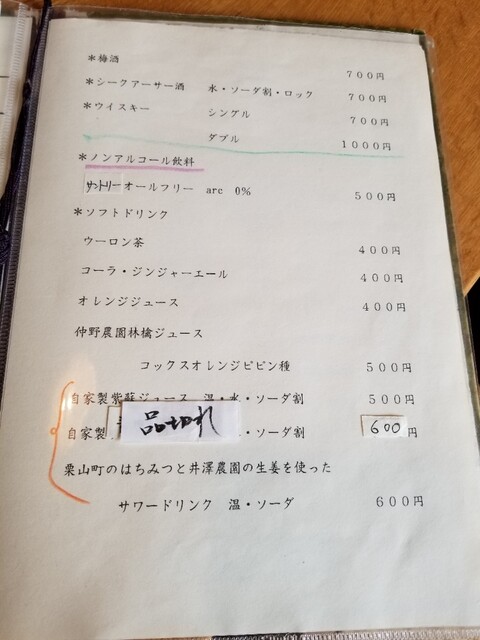 *梅酒 700円
*シークアーサー酒 水・ソーダ割・ロック 700円
*ウイスキー シングル 700円
ダブル 1000円
*ノンアルコール飲料
サントリーオールフリー arc 0% 500円
*ソフトドリンク
ウーロン茶 400円
コーラ・ジンジャーエール 400円
オレンジジュース 400円
仲野農園林檎ジュース
コックスオレンジピピン種 500円
自家製紫蘇ジュース 温・水・ソーダ割 500円
自家製 品切れ ・ソーダ割 600円
栗山町のはちみつと井澤農園の生姜を使った
サワードリンク 温・ソーダ 600円